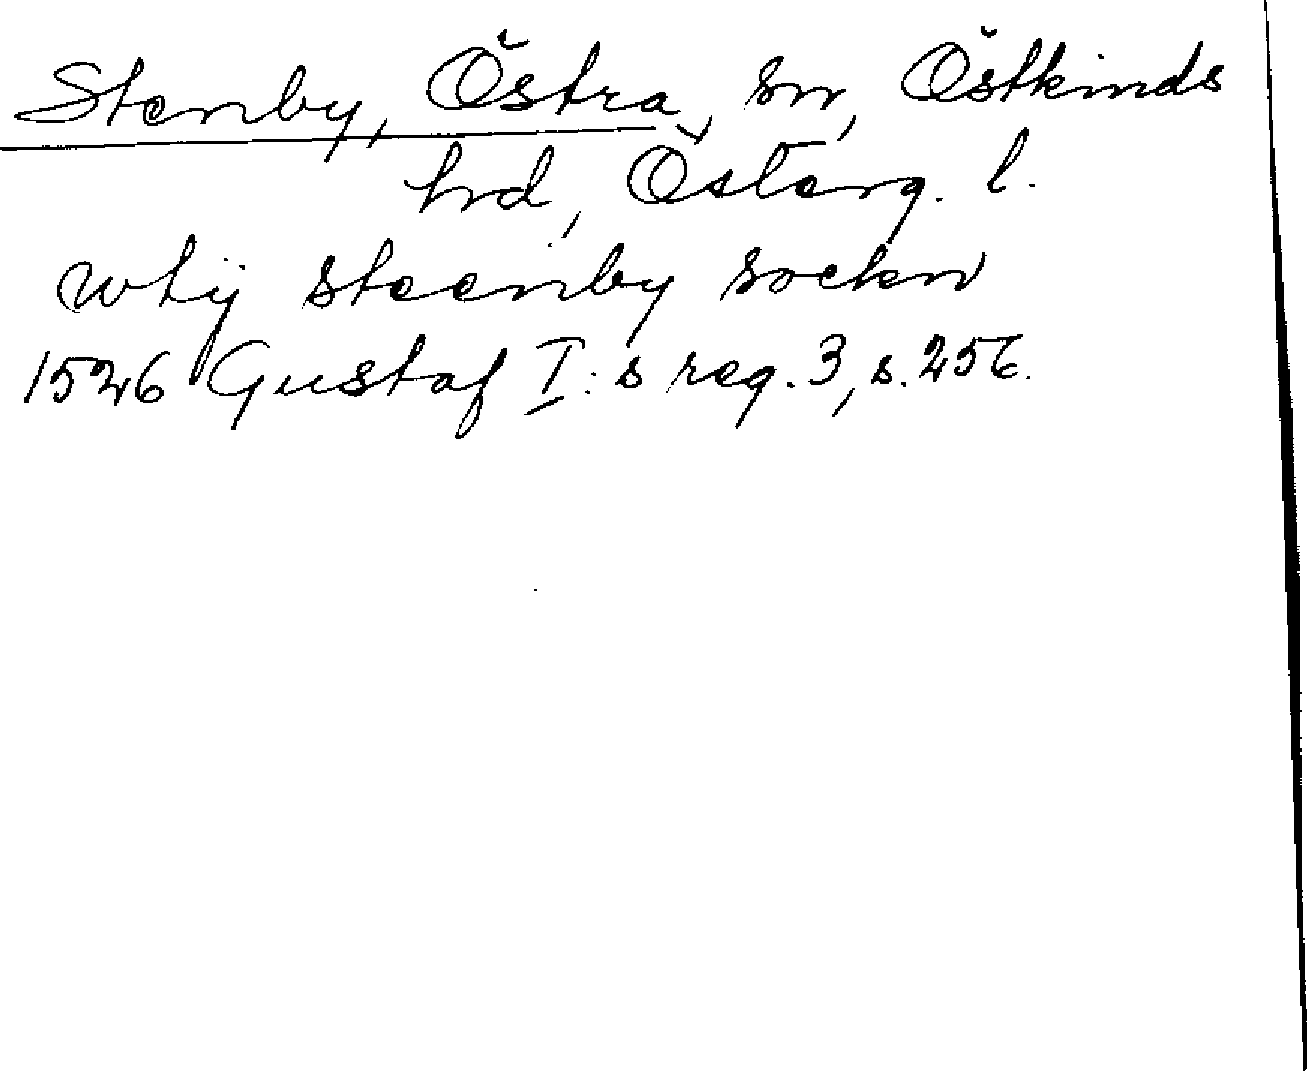 Stenby, Östra, sn, Östkinds
hrd, Österg. l.
whij steenby sockn
1526 Gustaf I:s reg. 3, s. 256.